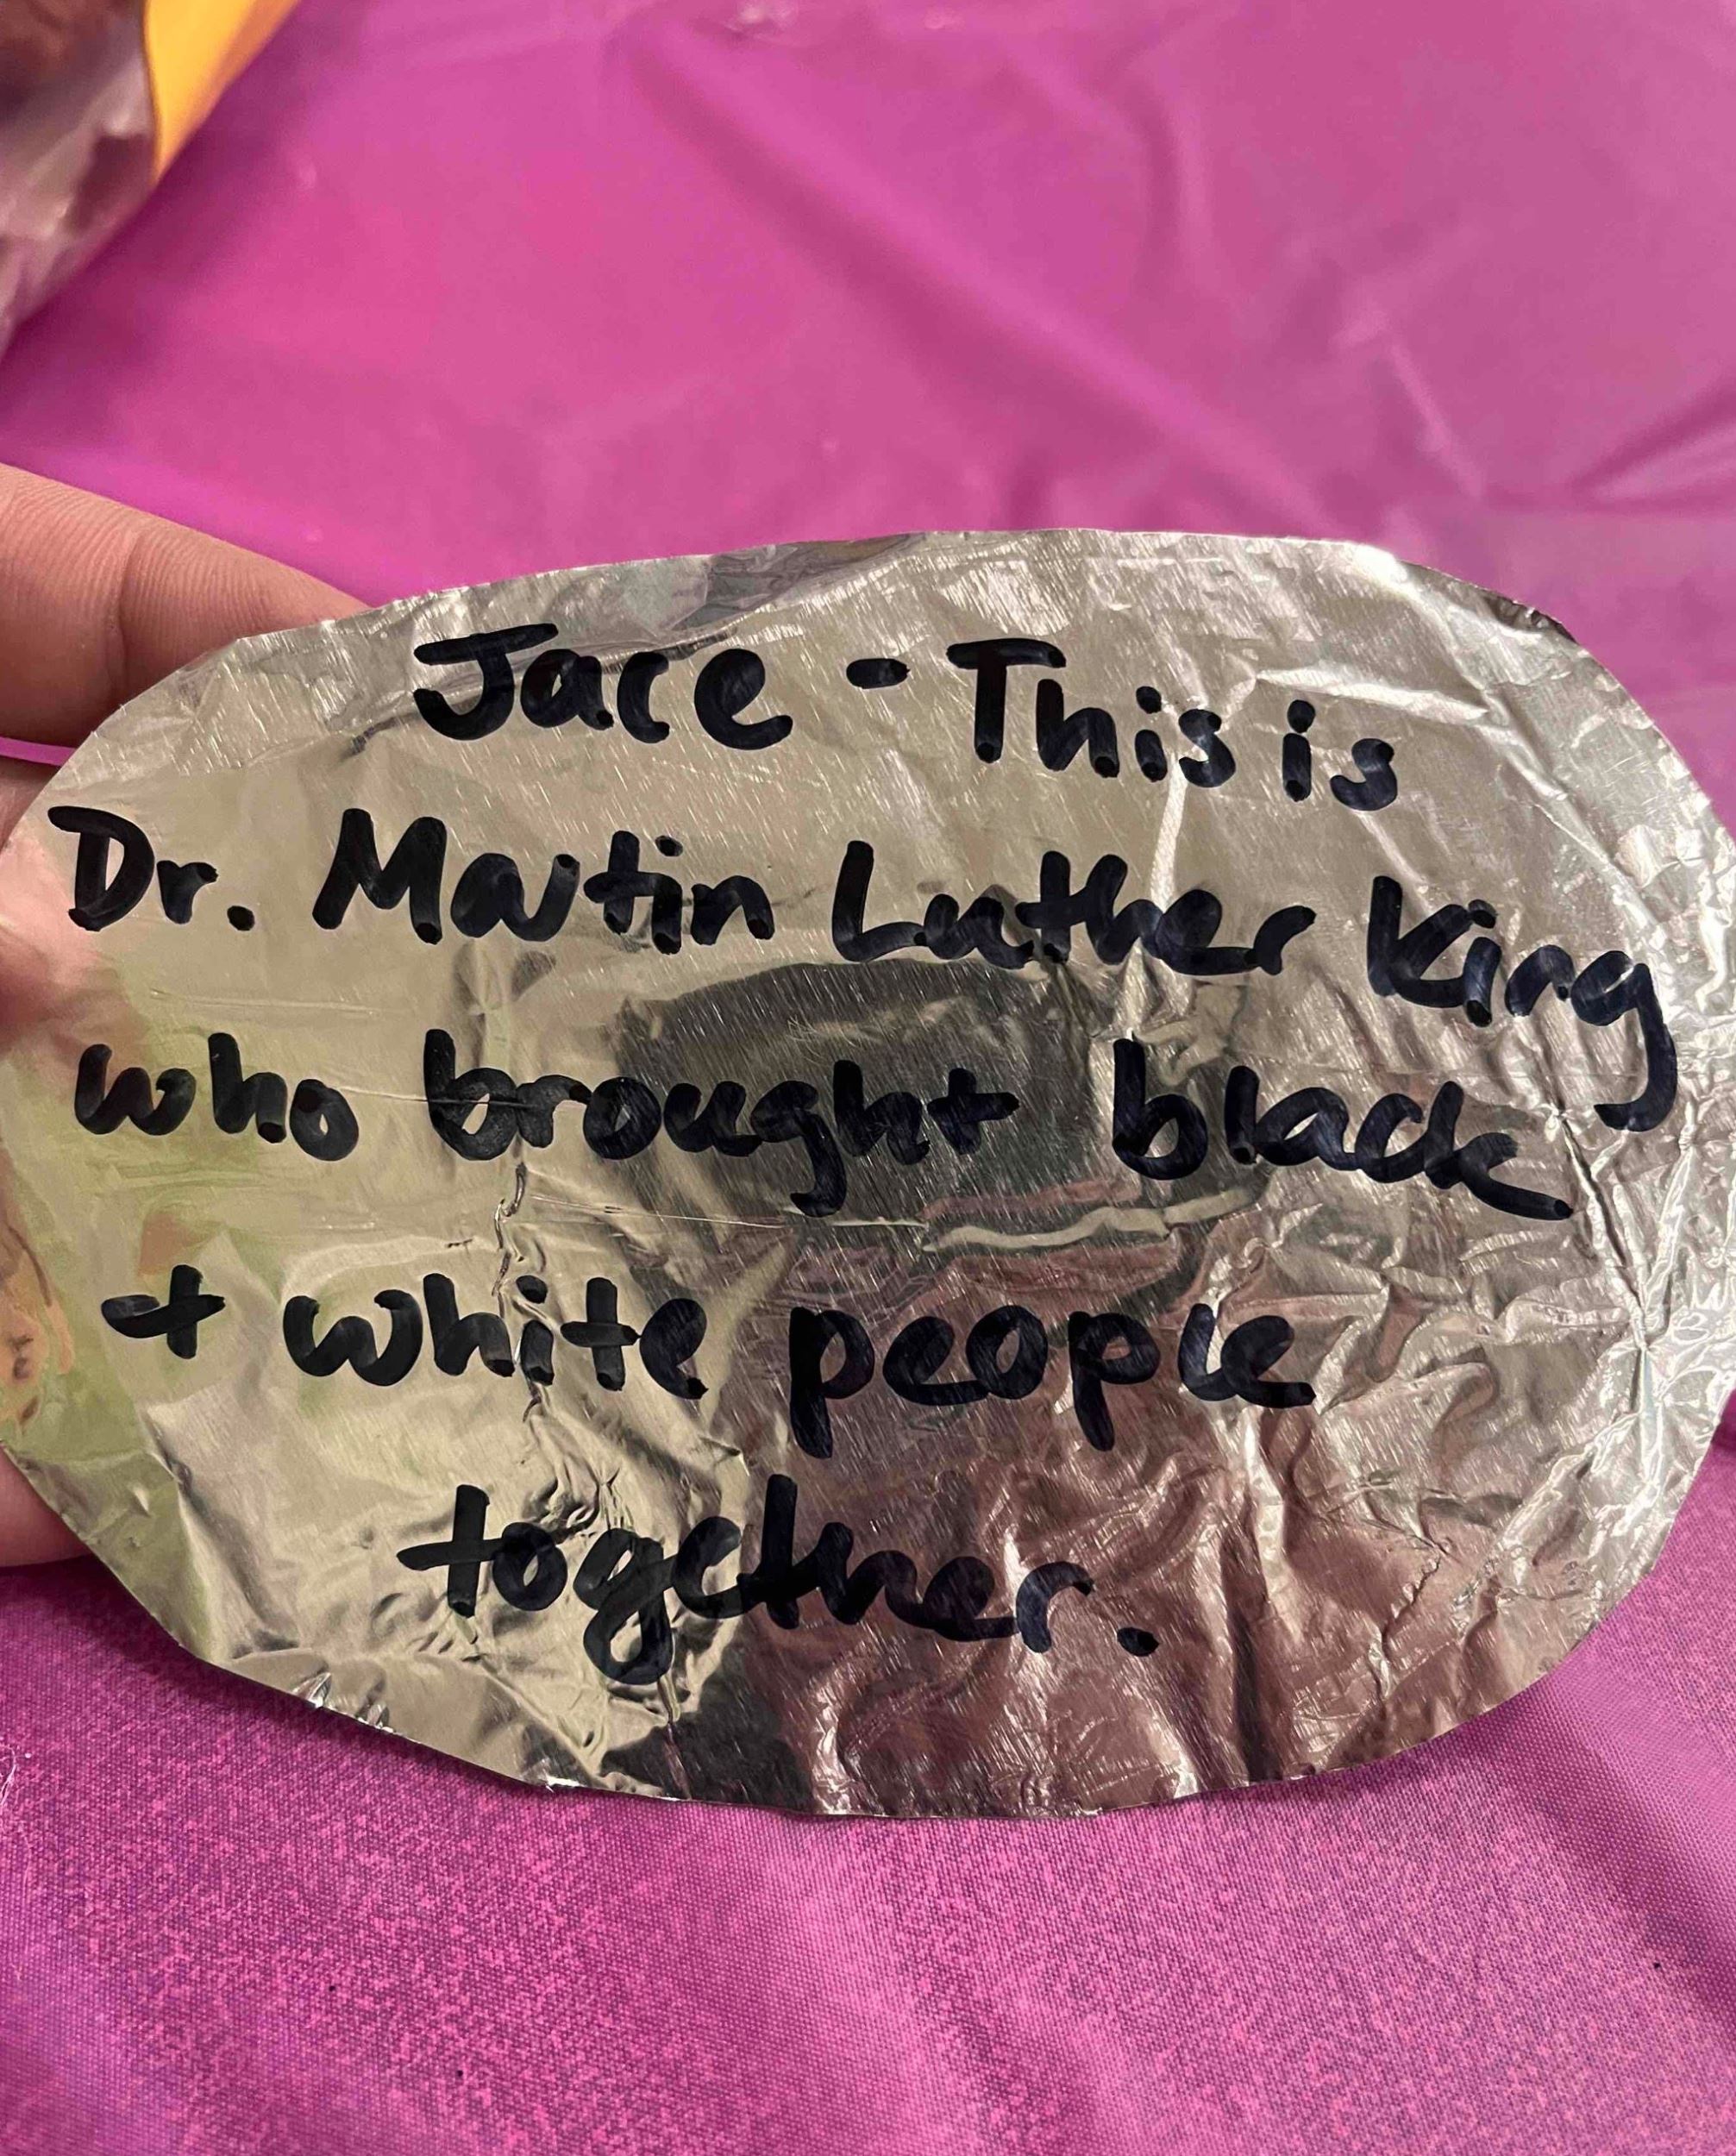 Jace - This is
Dr. Martin Luther King
who brought black
+ white people
together.